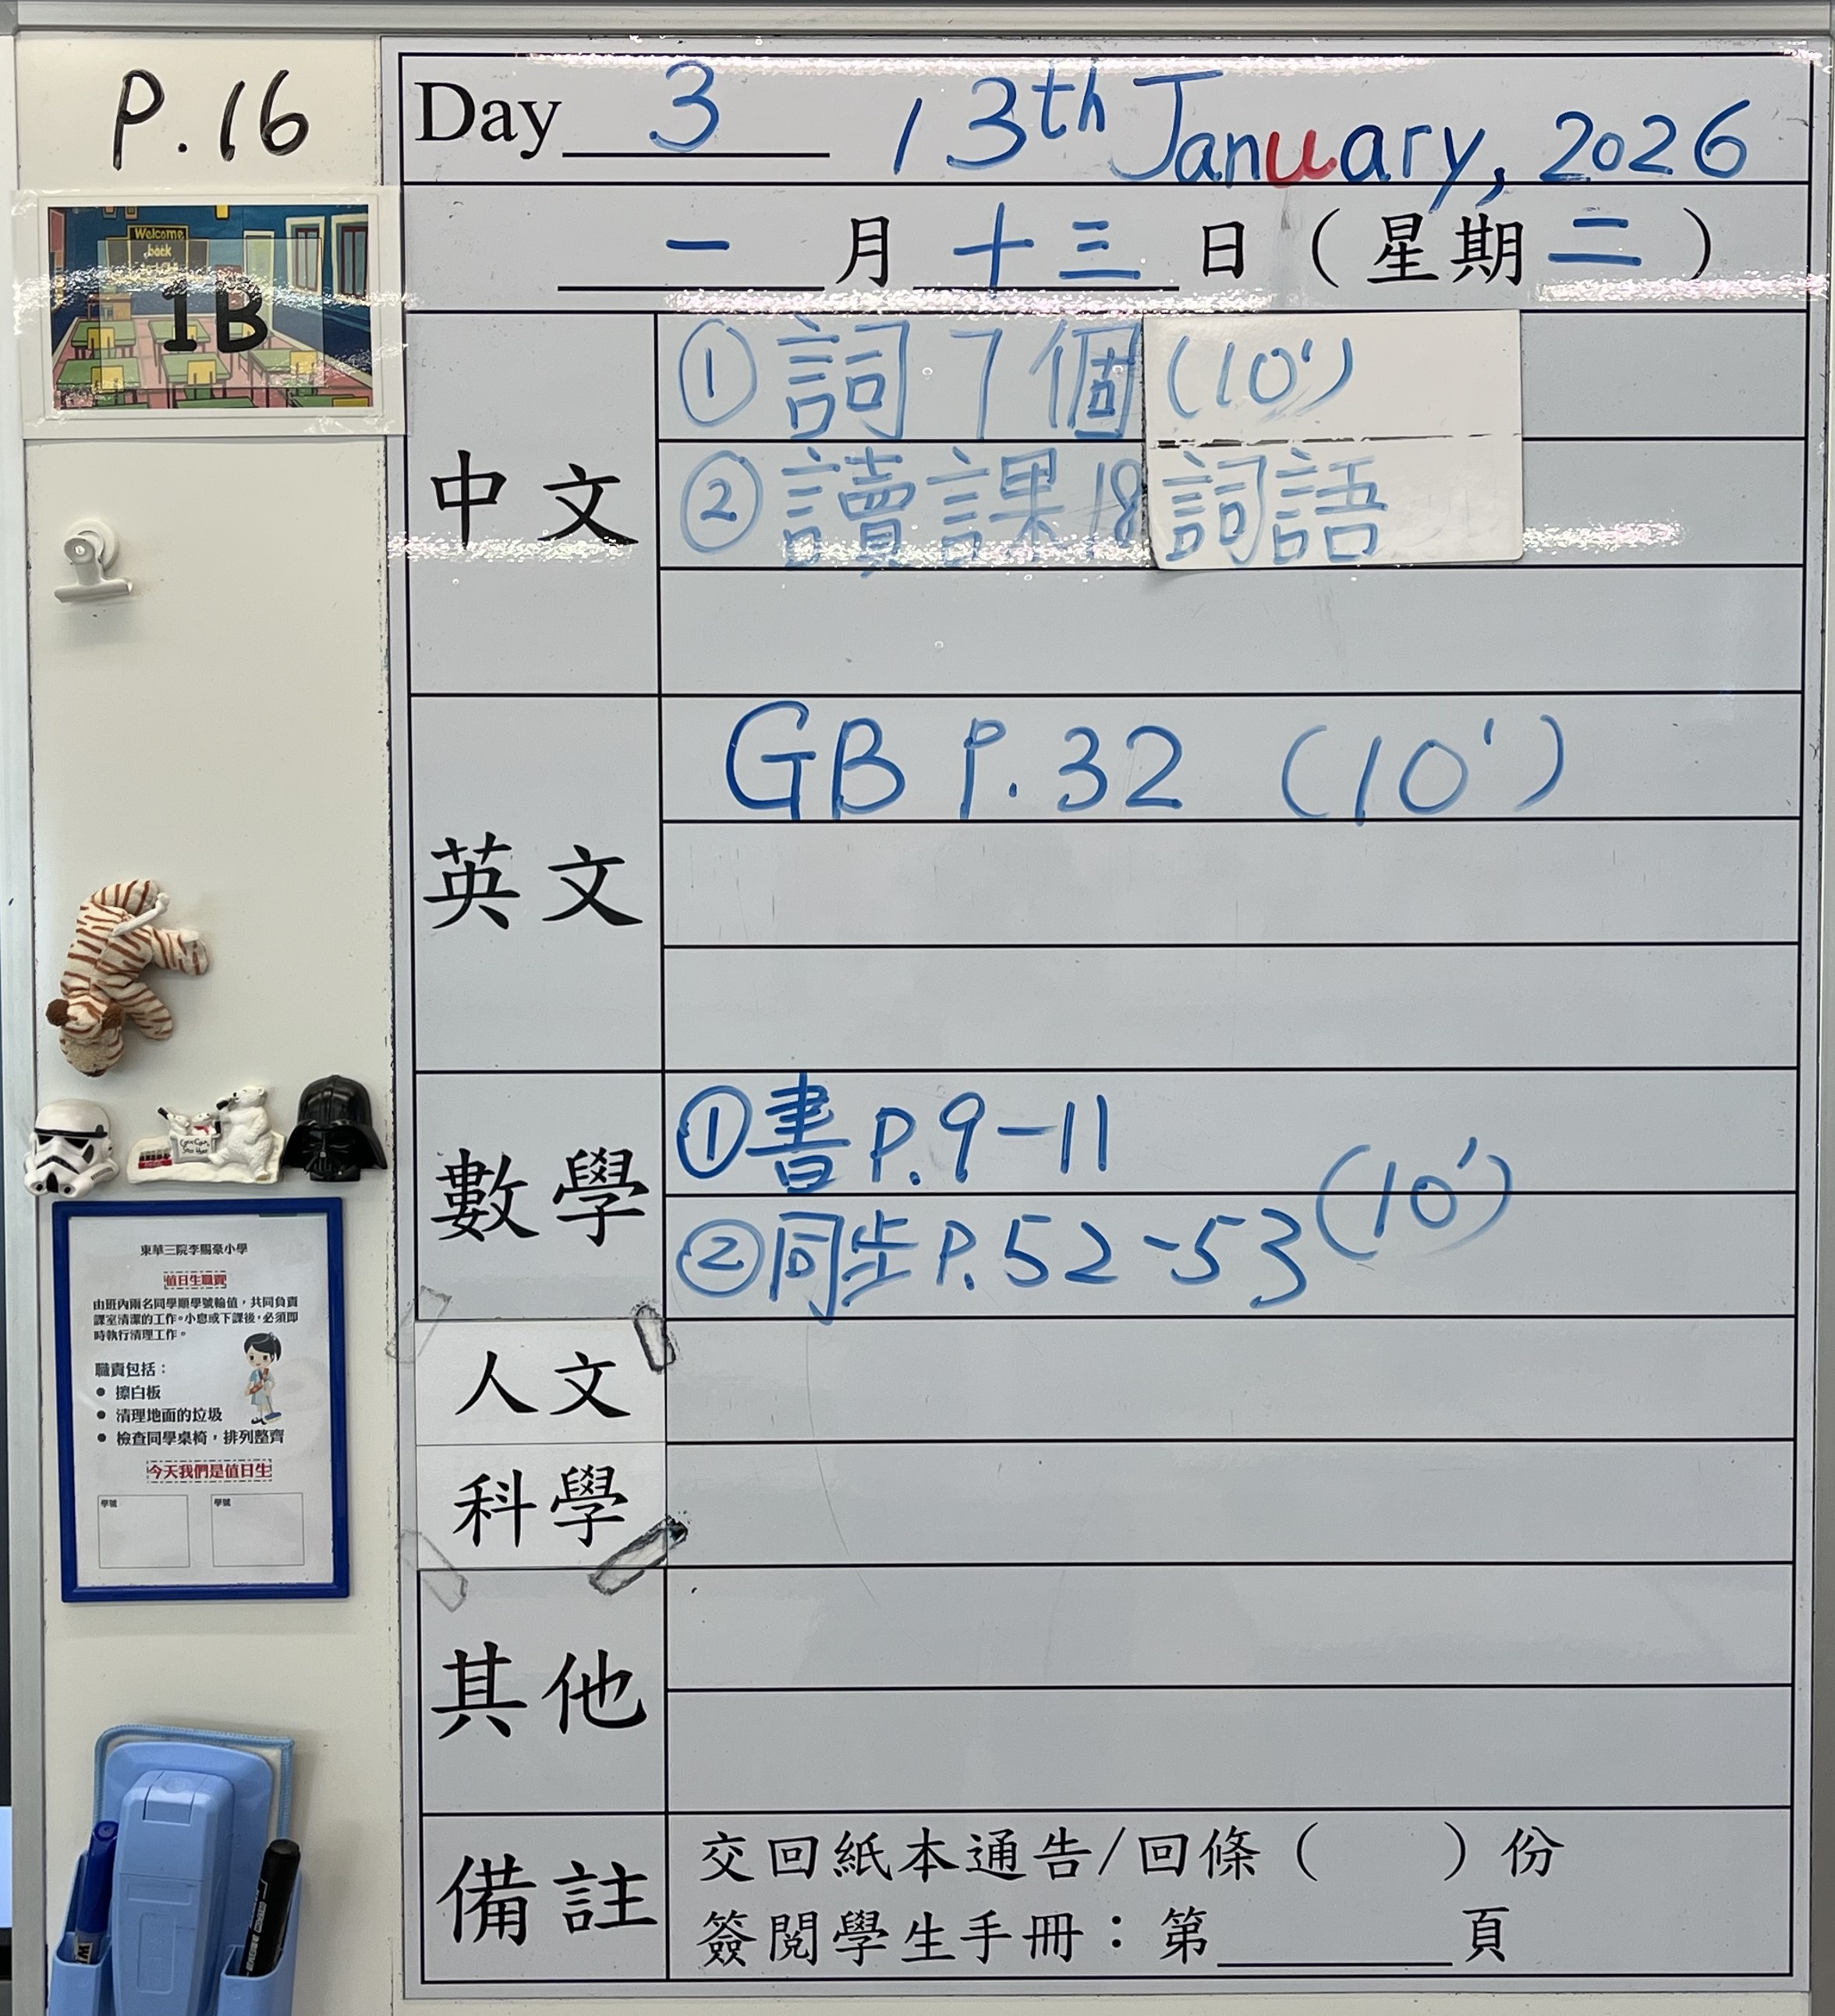 P.16
Welcome
back
1B
Day 3 13th January, 2026
一 月 十三 日（星期 二 ）
中文
① 詞 7 個 (10')
② 讀課 18 詞語
英文
GB P.32 (10')
數學
① 書 P.9-11
② 同步 P.52-53 (10')
人文
科學
其他
備註
交回紙本通告/回條（ ）份
簽閱學生手冊：第______頁
東華三院李賜豪小學
值日生職責
由班內兩名同學順學號輪值，共同負責
課室清潔的工作。小息或下課後，必須即
時執行清理工作。
職責包括：
● 擦白板
● 清理地面的垃圾
● 檢查同學桌椅，排列整齊
今天我們是值日生
學號 學號